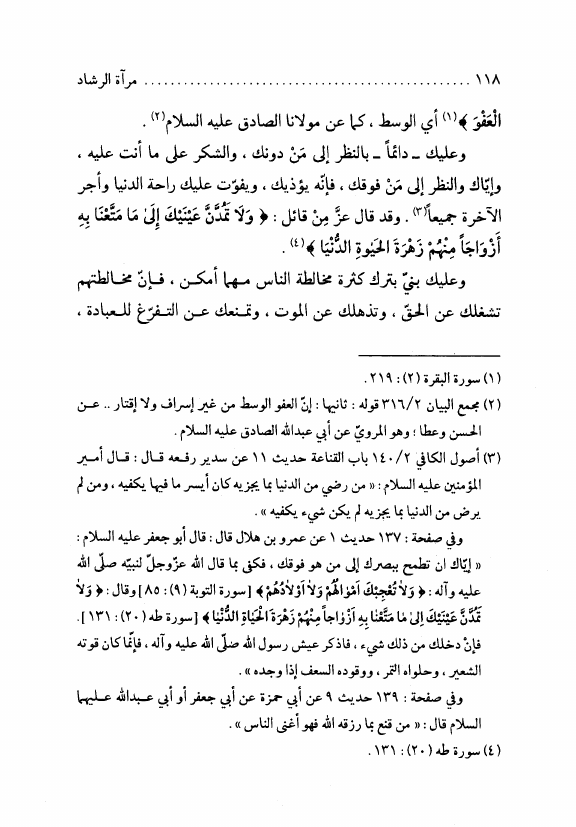 ١١٨ .................................................. مرآة الرشاد
الْعَفْوَ ﴾(١) أي الوسط ، كما عن مولانا الصادق عليه السلام(٢) .
وعليك ـ دائماً ـ بالنظر إلى مَنْ دونك ، والشكر على ما أنت عليه ،
وإيّاك والنظر إلى مَنْ فوقك ، فإنّه يؤذيك ، ويفوّت عليك راحة الدنيا وأجر
الآخرة جميعاً(٣) . وقد قال عزَّ مِنْ قائل : ﴿ وَلَا تَمُدَّنَّ عَيْنَيْكَ إِلَىٰ مَا مَتَّعْنَا بِهِ
أَزْوَاجَاً مِنْهُمْ زَهْرَةَ الحَيَوةِ الدُّنْيَا ﴾(٤) .
وعليك بنيّ بترك كثرة مخالطة الناس مـهما أمكـن ، فـإنّ مخـالطتهم
تشغلك عن الحقّ ، وتذهلك عن الموت ، وتمـنعك عـن التـفرّغ للـعبادة ،
(١) سورة البقرة (٢): ٢١٩.
(٢) مجمع البيان ٣١٦/٢ قوله : ثانيها : إنّ العفو الوسط من غير إسراف ولا إقتار .. عـن
الحسن وعطا ؛ وهو المرويّ عن أبي عبدالله الصادق عليه السلام .
(٣) أصول الكافي ١٤٠/٢ باب القناعة حديث ١١ عن سدير رفـعه قـال : قـال أمـير
المؤمنين عليه السلام : « من رضي من الدنيا بما يجزيه كان أيسر ما فيها يكفيه ، ومن لم
يرض من الدنيا بما يجزيه لم يكن شيء يكفيه » .
وفي صفحة : ١٣٧ حديث ١ عن عمرو بن هلال قال : قال أبو جعفر عليه السلام :
« إيّاك ان تطمح ببصرك إلى من هو فوقك ، فكفى بما قال الله عزّوجلّ لنبيّه صلّى الله
عليه وآله : ﴿ وَلاٰ تُعْجِبْكَ اَمْوٰالُهُمْ وَلاٰ اَوْلاٰدُهُمْ ﴾ [سورة التوبة (٩): ٨٥] وقال : ﴿ وَلاٰ
تَمُدَّنَّ عَيْنَيْكَ اِلىٰ مٰا مَتَّعْنٰا بِهِ اَزْوٰاجاً مِنْهُمْ زَهْرَةَ الْحَيٰاةِ الدُّنْيٰا ﴾ [سورة طه (٢٠): ١٣١].
فإنْ دخلك من ذلك شيء ، فاذكر عيش رسول الله صلّى الله عليه وآله ، فإنّما كان قوته
الشعير ، وحلواه التمر ، ووقوده السعف إذا وجده » .
وفي صفحة : ١٣٩ حديث ٩ عن أبي حمزة عن أبي جعفر أو أبي عـبدالله عـليهما
السلام قال : « من قنع بما رزقه الله فهو أغنى الناس » .
(٤) سورة طه (٢٠): ١٣١ .